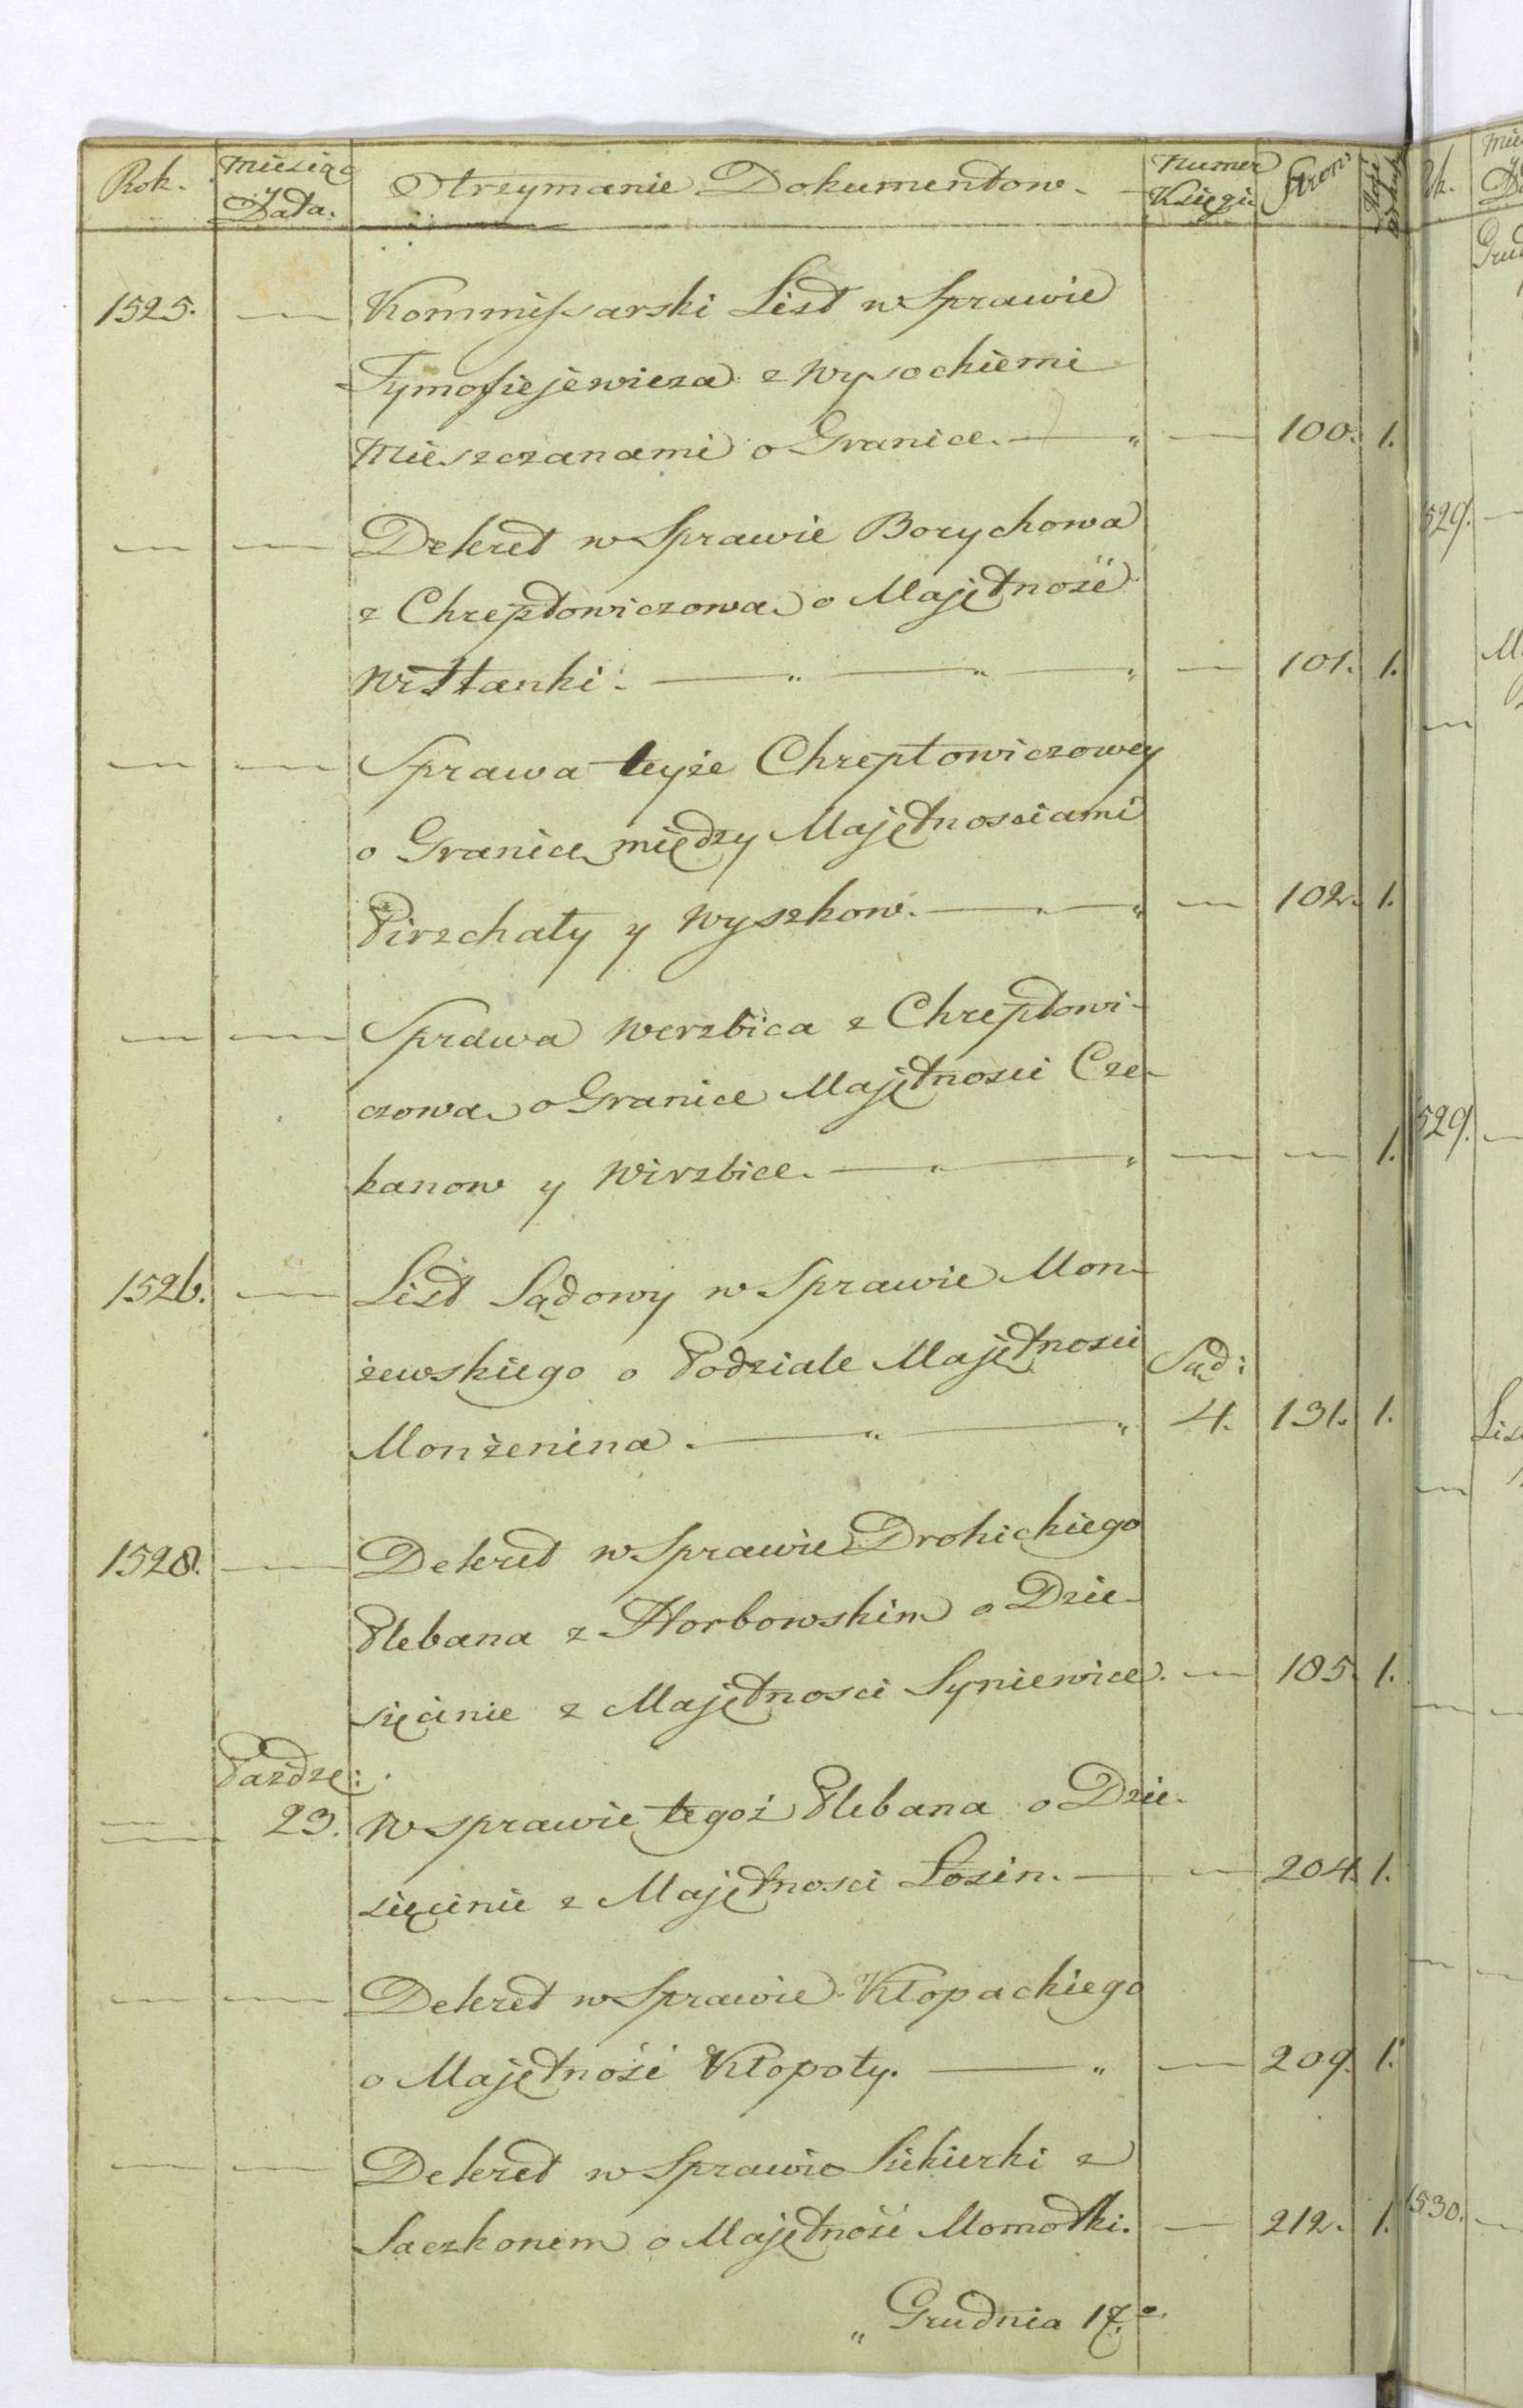 Rok. Miesiąc y Data. Otrzymanie Dokumentow. Numer Księgi Stron
1525. — Kommissarski List w Sprawie
Tymofiejewicza z Wysockiemi
Mieszczanami o Granice. — " — 100. 1.
— — Dekret w Sprawie Borychowa
z Chreptowiczowa o Majętność
Wistanki. — " — " — " — 101. 1.
— — Sprawa teyże Chreptowiczowey
o Granice między Majętnosciami
Pirzchaty y Wyszkow. — " — " — 102. 1.
— — Sprawa Werzbica z Chreptowi-
czowa o Granice Majętnosci Cze-
kanow y Wirzbice. — " — " — — 1.
1526. — List Sądowy w Sprawie Mon-
żewskiego o Podziale Majętnosci Sąd:
Monżenina. — " — " 4. 131. 1.
1528. — Dekret w Sprawie Drohickiego
Plebana z Horbowskim o Dzie-
sięcinie z Majętnosci Syniewice. — 185. 1.
Paźdze:
— 23. W sprawie tegoż Plebana o Dzie-
sięcinie z Majętnosci Łosin. — — 204. 1.
— — Dekret w Sprawie Kłopackiego
o Majętność Kłopoty. — " — 209. 1.
— — Dekret w Sprawie Sikierki z
Saczkonem o Majętność Momotki. — 212. 1.
" Grudnia 17.o
529.
529.
530.